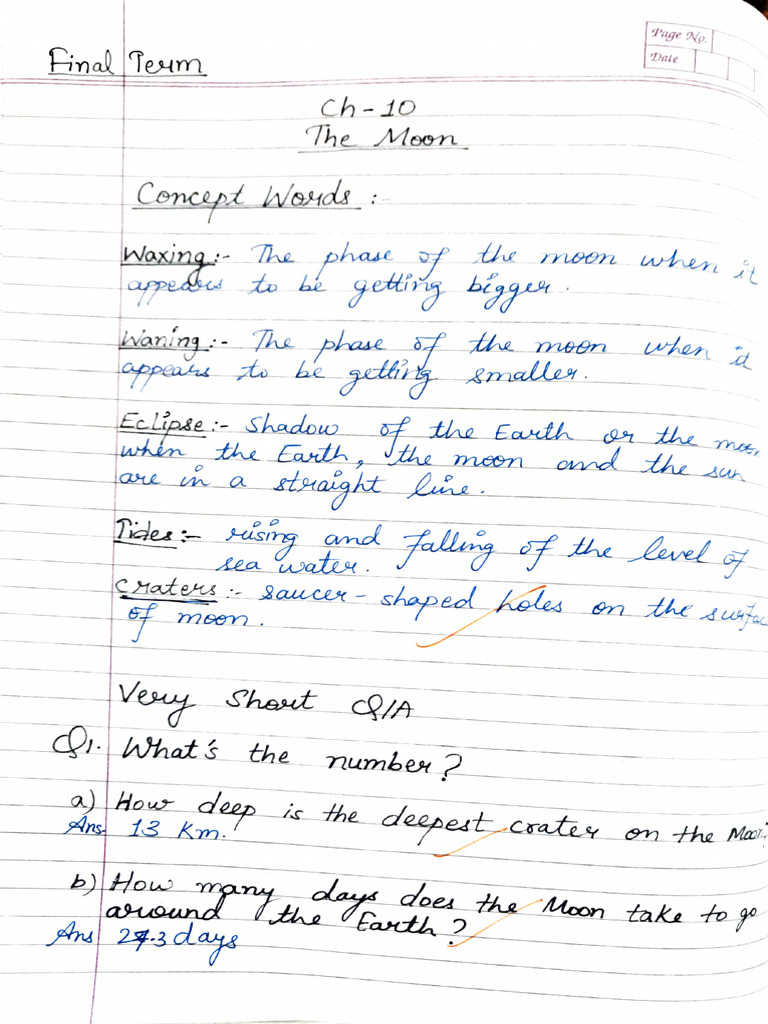 Page No.
Date
Final Term
Ch - 10
The Moon
Concept Words :
Waxing :- The phase of the moon when it
appears to be getting bigger.
Waning :- The phase of the moon when it
appears to be getting smaller.
Eclipse :- Shadow of the Earth or the moon
when the Earth, the moon and the sun
are in a straight line.
Tides :- rising and falling of the level of
sea water.
Craters :- saucer - shaped holes on the surfac
of moon.
Very Short Q/A
Q1. What's the number?
a) How deep is the deepest crater on the Moon?
Ans 13 Km.
b) How many days does the Moon take to go
around the Earth?
Ans 27.3 days